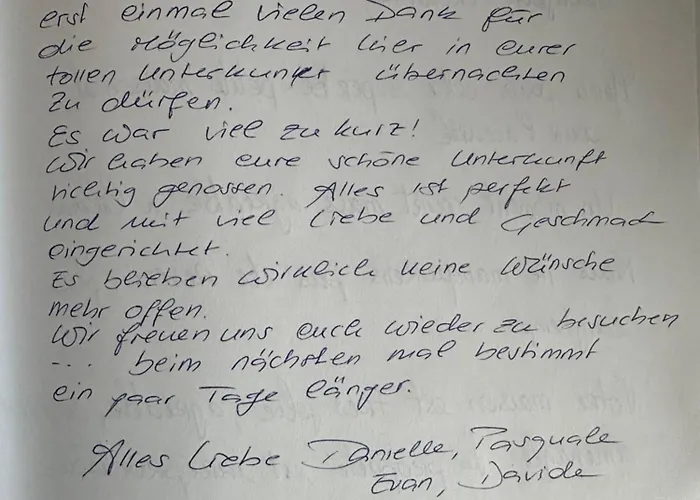 erst einmal vielen Dank für
die Möglichkeit hier in eurer
tollen Unterkunft übernachten
zu dürfen.
Es war viel zu kurz!
Wir haben eure schöne Unterkunft
richtig genossen. Alles ist perfekt
und mit viel Liebe und Geschmack
eingerichtet.
Es blieben wirklich keine Wünsche
mehr offen.
Wir freuen uns euch wieder zu besuchen
... beim nächsten mal bestimmt
ein paar Tage länger.
Alles Liebe Danielle, Pasquale
Evan, Davide